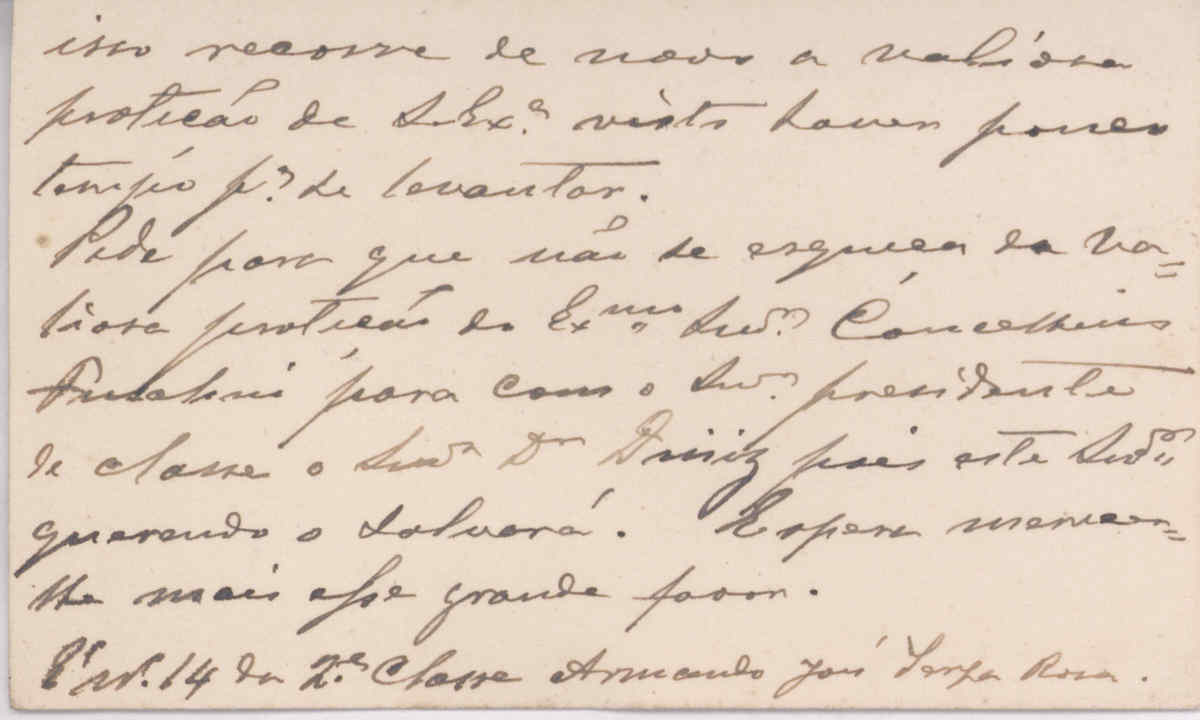 isso recorre de novo a valiosa
proteição de S. Exª. visto haver pouco
tempo pª. se levantar.
Pede para que não se esqueça da va=
liosa proteição do Exmo. Snr. Concelheiro
para com o Snr. presidente
de classe o Snr. Dr Diniz pois este Snr.
querendo o salvará. Espera merecer=
lhe mais esse grande favor.
Nº. 14 da 2ª. Classe Armando José Rosa.